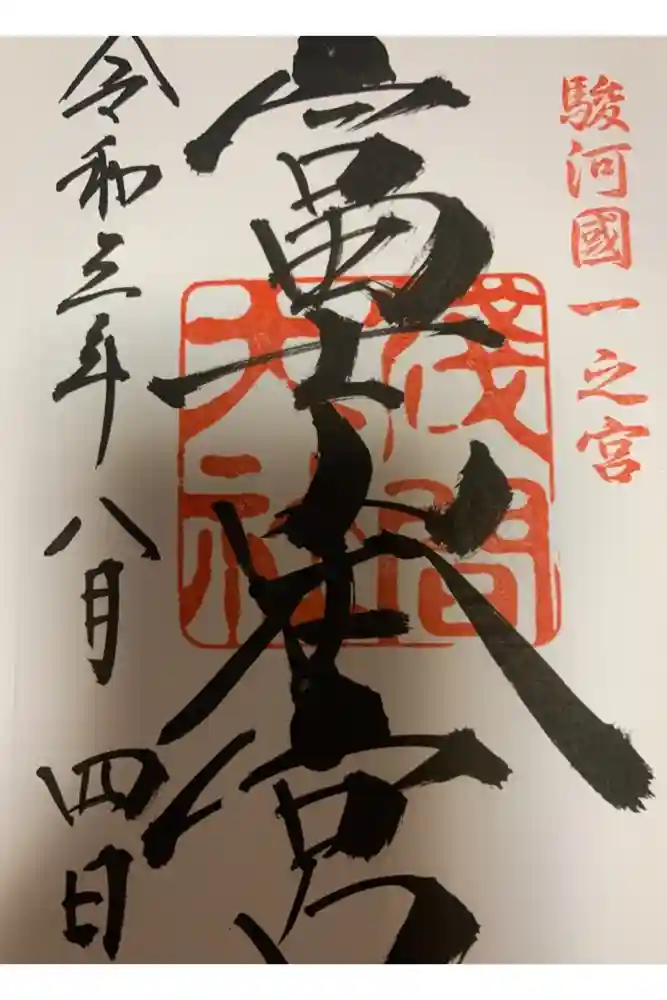 駿河國一之宮
富士本宮
淺間
大社
令和三年八月四日